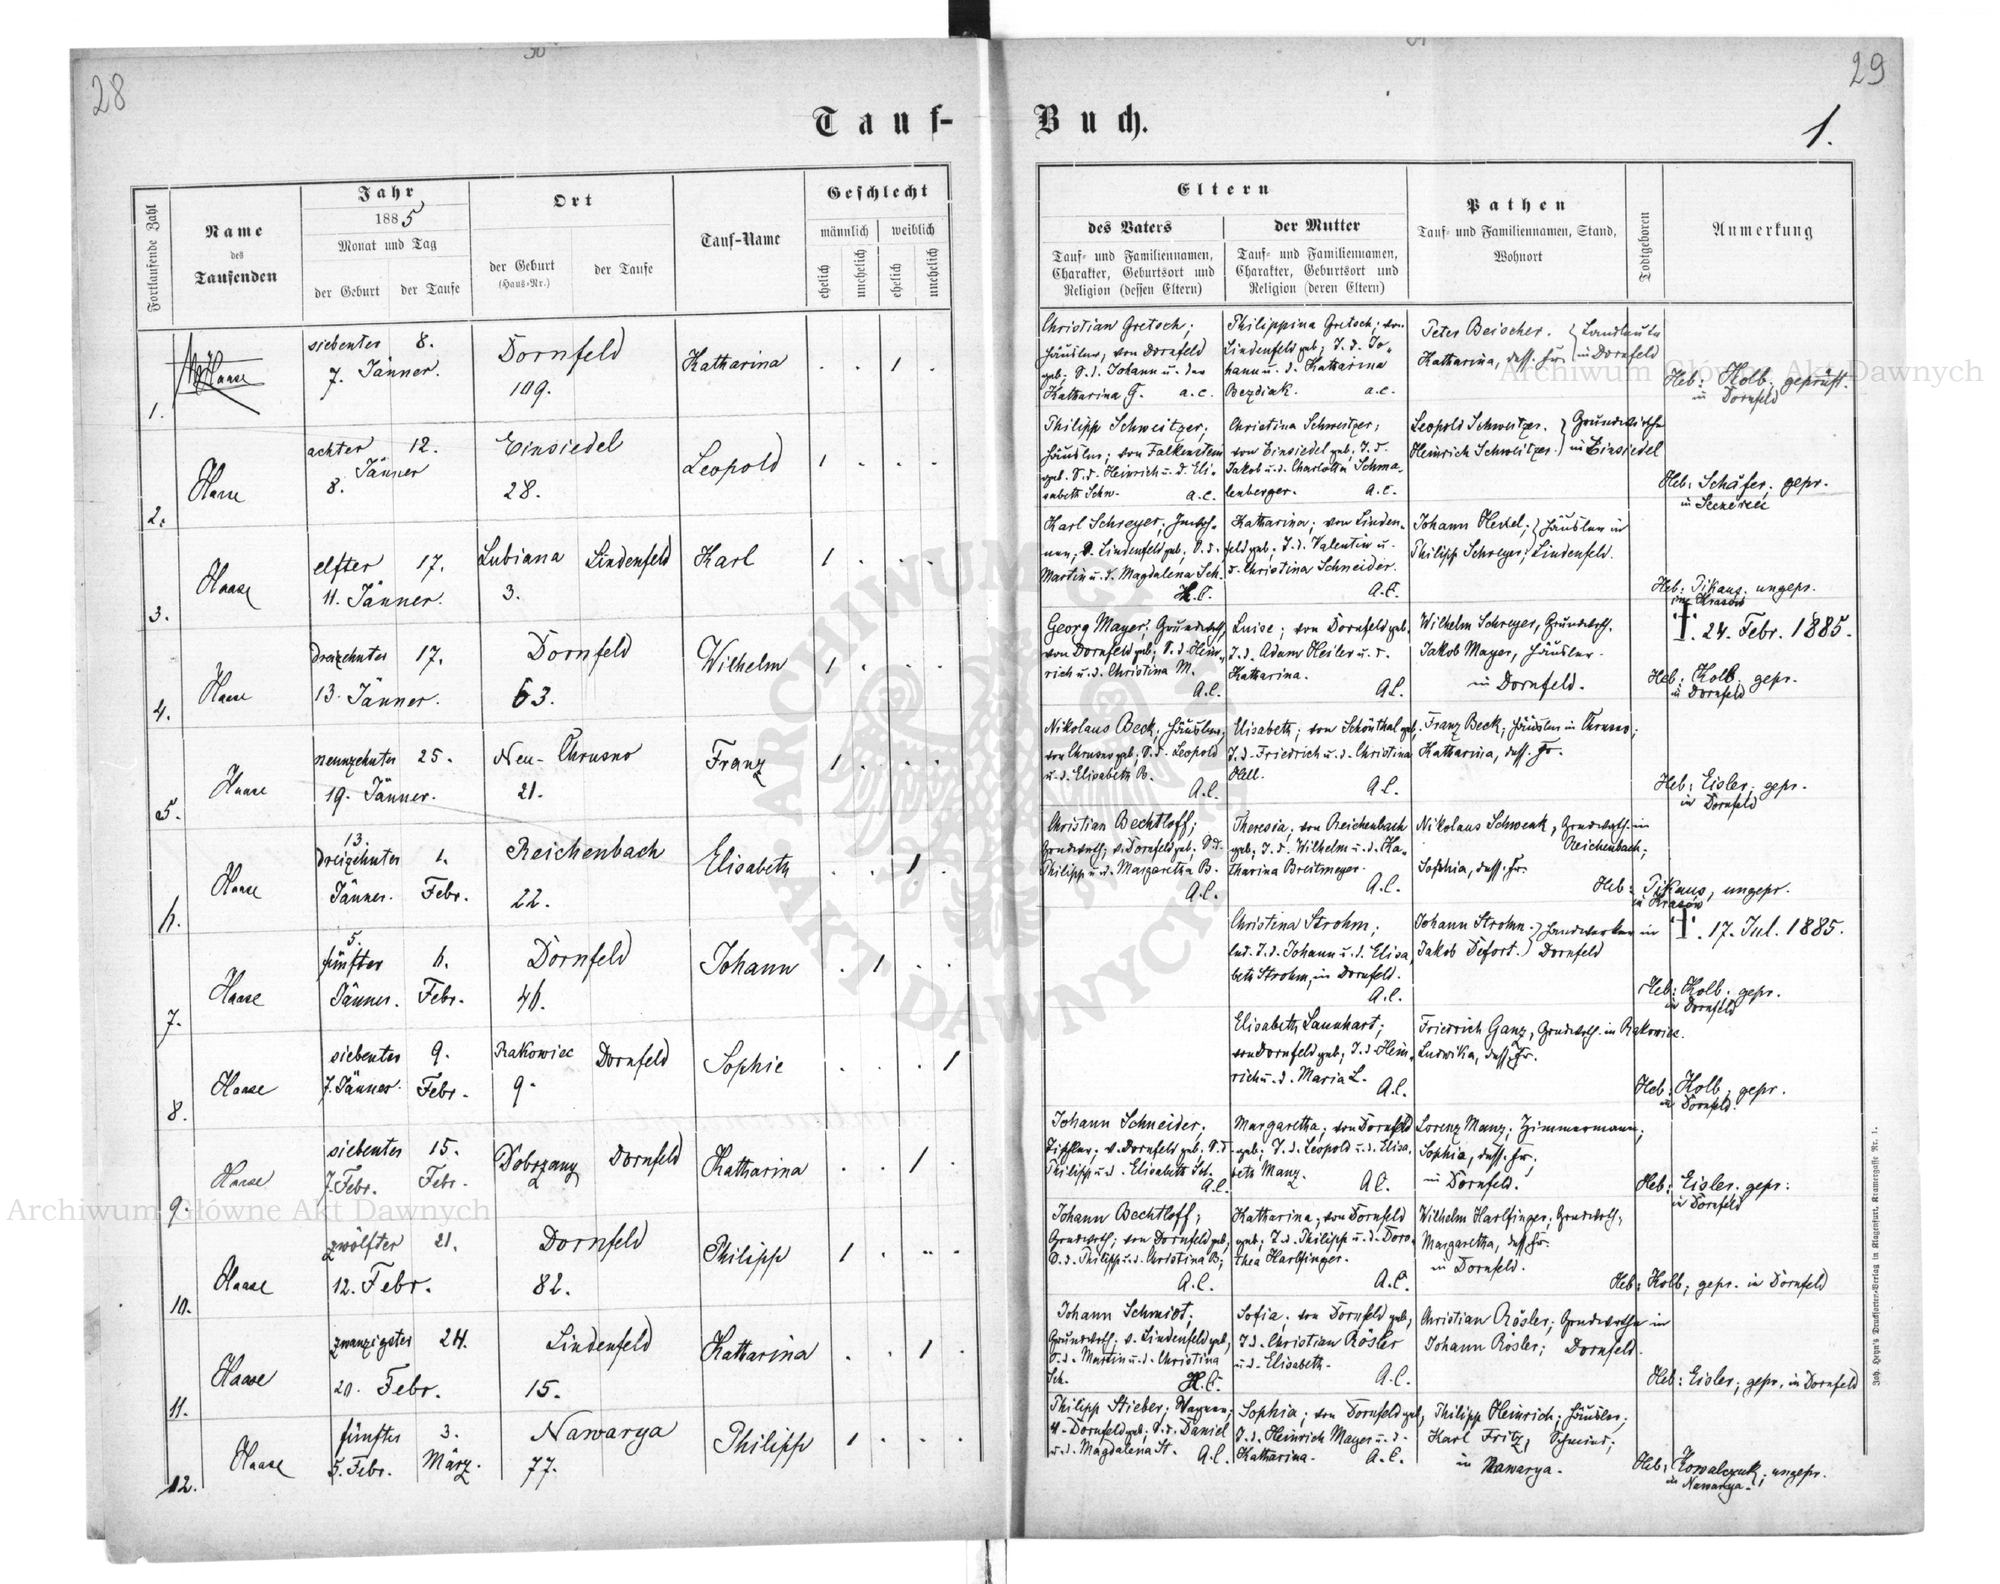 28
29
Tauf-
Buch.
1.
Fortlaufende Zahl
Name
des
Taufenden
Jahr
1885
Monat und Tag
der Geburt
der Taufe
Ort
der Geburt
(Haus-Nr.)
der Taufe
Tauf-Name
Geschlecht
männlich
weiblich
ehelich
unehelich
ehelich
unehelich
Eltern
des Vaters
Tauf- und Familiennamen,
Charakter, Geburtsort und
Religion (dessen Eltern)
der Mutter
Tauf- und Familiennamen,
Charakter, Geburtsort und
Religion (deren Eltern)
Pathen
Tauf- und Familiennamen, Stand,
Wohnort
Todtgeboren
Anmerkung
1.
Haase
siebenter 8.
7. Jänner.
Dornfeld
109.
Katharina
. . 1 .
Christian Gretsch;
Häusler, von Dornfeld
geb. S. d. Johann u. der
Katharina G. a. c.
Philippina Gretsch; von
Lindenfeld geb; T. d. Jo-
hann u. d. Katharina
Bezdiak. a. c.
Peter Beischer. Landleute
Katharina, dess. Fr. in Dornfeld
Heb: Kolb; geprüft.
in Dornfeld
2.
Haase
achter 12.
8. Jänner
Einsiedel
28.
Leopold
1 . . .
Philipp Schweitzer;
Häusler; von Falkenstein
geb. S. d. Heinrich u. d. Eli-
sabeth Schw. a. c.
Christina Schweitzer;
von Einsiedel geb; T. d.
Jakob u. d. Charlotta Schma-
lenberger. a. c.
Leopold Schweitzer. Grundwirthe
Heinrich Schweitzer. in Einsiedel
Heb: Schäfer; gepr.
3.
Haase
elfter 17.
11. Jänner.
Lubiana Lindenfeld
3.
Karl
1 . . .
Karl Schreyer;
Lindenfeld geb; S. d.
Martin u. d. Magdalena Sch.
H. C.
Katharina; von Linden-
feld geb; T. d. Valentin u.
d. Christina Schneider.
A. C.
Johann Heckel; Häusler in
Philipp Schreyer; Lindenfeld.
Heb: Pikaus; ungepr.
in Krasów
4.
Haase
dreizehnter 17.
13. Jänner.
Dornfeld
63.
Wilhelm
1 . . .
Georg Mayer; Grundwrth;
von Dornfeld geb; S. d. Hein-
rich u. d. Christina M.
A. C.
Luise; von Dornfeld geb.
T. d. Adam Heiler u. d.
Katharina.
A. C.
Wilhelm Schreyer, Grundwrth.
Jakob Mayer, Häusler.
in Dornfeld.
†. 24. Febr. 1885.
Heb: Kolb; gepr.
in Dornfeld
5.
Haase
neunzehnter 25.
19. Jänner.
Neu-Chrusno
21.
Franz
1 . . .
Nikolaus Beck; Häusler;
von Chrusno geb; S. d. Leopold
u. d. Elisabeth B.
A. C.
Elisabeth; von Schönthal geb.
T. d. Friedrich u. d. Christina
A. C.
Franz Beck; Häusler in Chrusno;
Katharina, dess. Fr.
Heb: Eisler; gepr.
in Dornfeld
6.
Haase
13.
dreizehnter 1.
Jänner. Febr.
Reichenbach
22.
Elisabeth
. . 1 .
Christian Bechtloff;
Grundwrth; v. Dornfeld geb; S. d.
Philipp u. d. Margaretha B.
A. C.
Theresia; von Reichenbach
geb; T. d. Wilhelm u. d. Ka-
tharina Breitmeyer.
A. C.
Nikolaus Schwenk, Grundwrth. in
Reichenbach;
Sophia, dess. Fr.
Heb: Pikaus, ungepr.
in Krasów
7.
Haase
5.
fünfter 6.
Jänner. Febr.
Dornfeld
46.
Johann
. 1 . .
Christina Strohm;
led. T. d. Johann u. d. Elisa-
beth Strohm, in Dornfeld.
A. C.
Johann Strohm. Handwerker in
Jakob Defort. Dornfeld
†. 17. Jul. 1885.
Heb: Kolb; gepr.
in Dornfeld
8.
Haase
siebenter 9.
7. Jänner. Febr.
Rakowiec Dornfeld
9.
Sophie
. . . 1
Elisabeth Launhart;
von Dornfeld geb; T. d. Hein-
rich u. d. Maria L.
A. C.
Friedrich Ganz, Grundwrth. in Rakowiec.
Ludwika, dess. Fr.
Heb: Kolb; gepr.
in Dornfeld.
9.
Haase
siebenter 15.
7. Febr. Febr.
Dobrzany Dornfeld
Katharina
. . 1 .
Johann Schneider.
Tischler; v. Dornfeld geb; S. d.
Philipp u. d. Elisabeth Sch.
A. C.
Margaretha; von Dornfeld
geb; T. d. Leopold u. d. Elisa-
beth Manz.
A. C.
Lorenz Manz; Zimmermann;
Sophia, dess. Fr;
in Dornfeld.
Heb: Eisler. gepr:
in Dornfeld
10.
Haase
zwölfter 21.
12. Febr.
Dornfeld
82.
Philipp
1 . . .
Johann Bechtloff;
Grundwrth; von Dornfeld geb;
S. d. Philipp u. d. Christina B;
A. C.
Katharina; von Dornfeld
geb; T. d. Philipp u. d. Doro-
thea Harlfinger.
A. C.
Wilhelm Harlfinger; Grundwrth;
Margaretha, dess. Fr.
in Dornfeld.
Heb: Kolb; gepr. in Dornfeld
11.
Haase
zwanzigster 24.
20. Febr.
Lindenfeld
15.
Katharina
. . 1 .
Johann Schmidt;
Grundwrth; v. Lindenfeld geb;
S. d. Martin u. d. Christina
Sch. H. C.
Sofia; von Dornfeld geb;
T. d. Christian Rösler
u. d. Elisabeth.
A. C.
Christian Rösler; Grundwrthe in
Johann Rösler; Dornfeld.
Heb: Eisler; gepr. in Dornfeld
12.
Haase
fünfter 3.
5. Febr. März.
Nawarya
77.
Philipp
1 . . .
Philipp Stieber; Wagner;
v. Dornfeld geb; S. d. Daniel
u. d. Magdalena St. A. C.
Sophia; von Dornfeld geb;
T. d. Heinrich Mayer u. d.
Katharina. A. C.
Philipp Heinrich; Häusler;
Karl Fritz; Schmied;
in Nawarya.
Heb: Kowalczuk; ungepr.
in Nawarya.
Joh. Heyn's Drucksorten-Verlag in Klagenfurt, Kramergasse Nr. 1.
Archiwum Główne Akt Dawnych
Archiwum Główne Akt Dawnych
ARCHIWUM GŁÓWNE AKT DAWNYCH